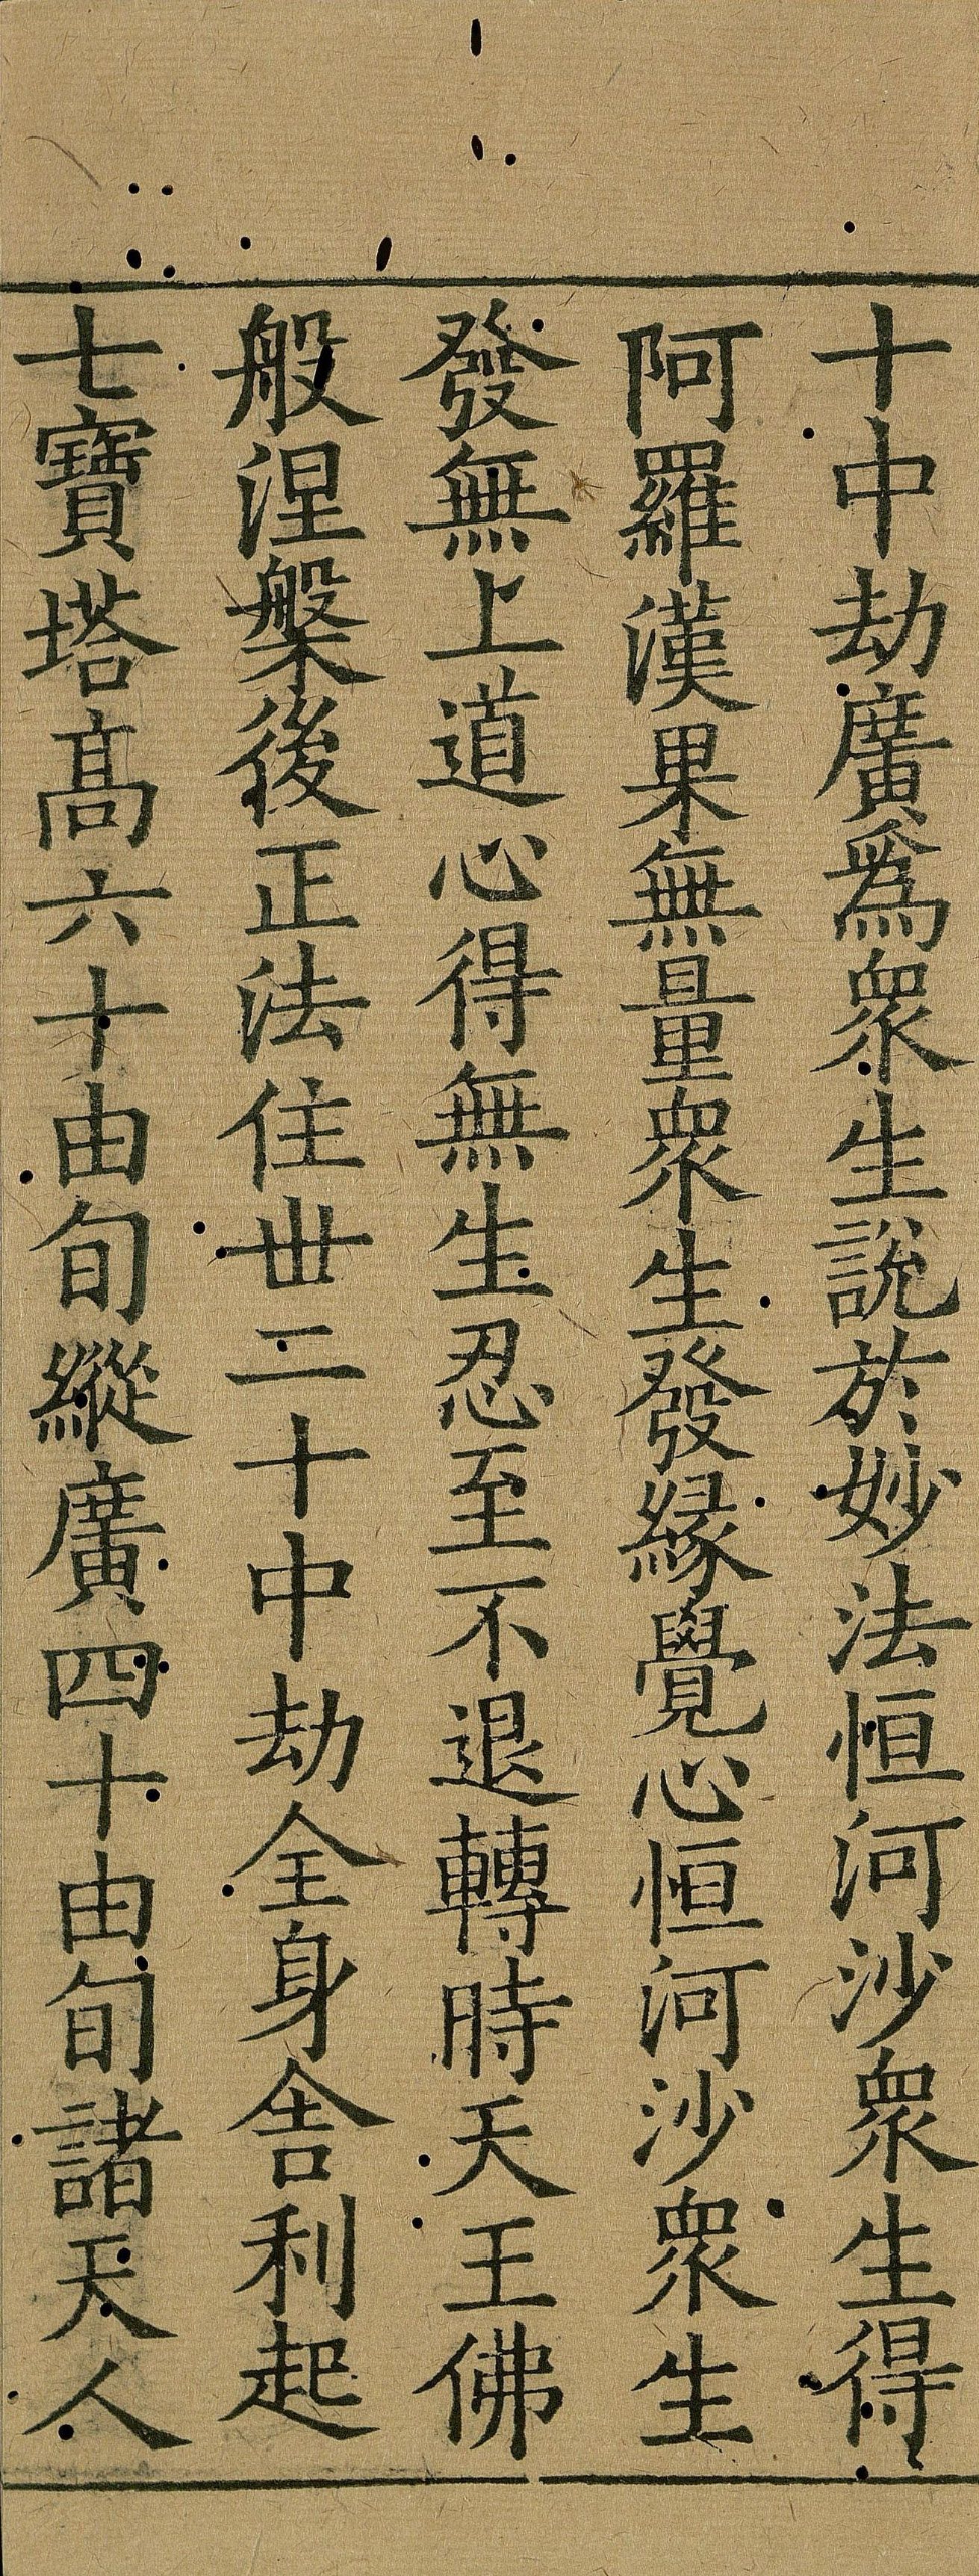 十中劫廣爲衆生說於妙法恒河沙衆生得
阿羅漢果無量衆生發緣覺心恒河沙衆生
發無上道心得無生忍至不退轉時天王佛
般涅槃後正法住丗二十中劫全身舍利起
七寶塔髙六十由旬縱廣四十由旬諸天人